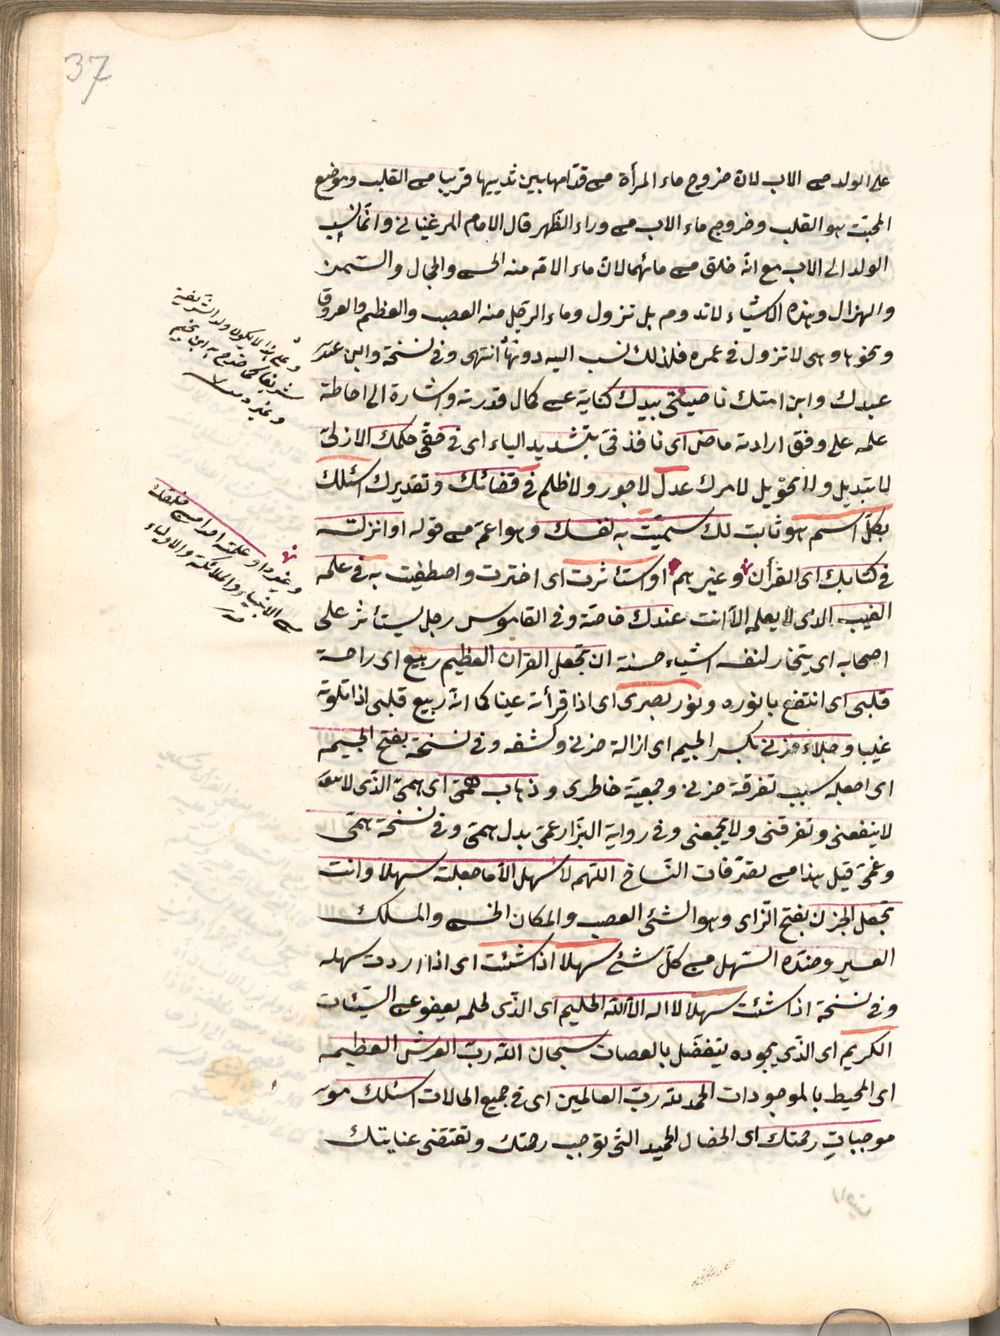 37
على الولد من الاب لان خروج ماء المرأة من قدامها بين ثدييها قريبا من القلب وموضع
المحبة هو القلب وخروج ماء الاب من وراء الظهر قال الامام المرغيناني وانما نسب
الولد الى الاب مع انه خلق من مائهما لان ماء الام منه الحسن والجمال والسمن
والهزال وهذه الاشياء لا تدوم بل تزول وماء الرجل منه العصب والعظم والعروق
ونحوها وهي لا تزول في عمره فلذلك نسب اليه دونها انتهى وفي نسخة وابن عبدك
عبدك وابن امتك ناصيتى بيدك كناية عن كمال قدرته واشارة الى احاطة
علمه على وفق ارادته ماض اى نافذ فيّ بتشديد الياء اى في حقى حكمك الازلى
لا تبديل ولا تحويل لامرك عدل لا جور ولا ظلم في قضائك وتقديرك اسئلك
بكل اسم هو ثابت لك سميت به نفسك وهو اعم من قوله او انزلته
في كتابك اى القرآن وغيرهم او استأثرت اى اخترت واصطفيت به في علم
الغيب الذى لا يعلمه الا انت عندك خاصة وفي القاموس رجل يستأثر على
اصحابه اى يختار لنفسه اشياء حسنة ان تجعل القرآن العظيم ربيع اى راحة
قلبى اى انتفع بانوره ونور بصرى اى اذا قرأته عينا كما انه ربيع قلبى اذا تلوته
غيبا وجلاء حزنى بكسر الجيم اى ازالة حزنى وكشفه وفي نسخة بفتح الجيم
اى اجعله سبب تفرقة حزنى وجمعية خاطرى وذهاب همى اى همى الذى
لا ينفعنى وتفرقنى ولا يجمعنى وفي رواية البزار غمى بدل همى وفي نسخة همى
وغمى قيل هذا من تصرفات النساخ اللهم لا سهل الا ما جعلته سهلا وانت
تجعل الحزن بفتح الزاى وهو الشئ الصعب والمكان الخشن والمسلك
العسير وضده السهل من كل شئ سهلا اذا شئت اى اذا اردت سهله
وفي نسخة اذا شئت سهلا لا اله الا الله الحليم اى الذى لحلمه يعفو عن السيئات
الكريم اى الذى بجوده يتفضل بالعصات سبحان الله رب العرش العظيم
اى المحيط بالموجودات الحمد لله رب العالمين اى في جميع الحالات اسئلك
موجبات رحمتك اى الخصال الحميد التى توجب رحمتك وتقتضى عنايتك
وعلى هذا لا يكون ولد الشريفة
شريفا كما صرح به ابن نجيم
وغيره
وغيره او علمته احدا من خلقك
من الانبياء والملائكة والاولياء